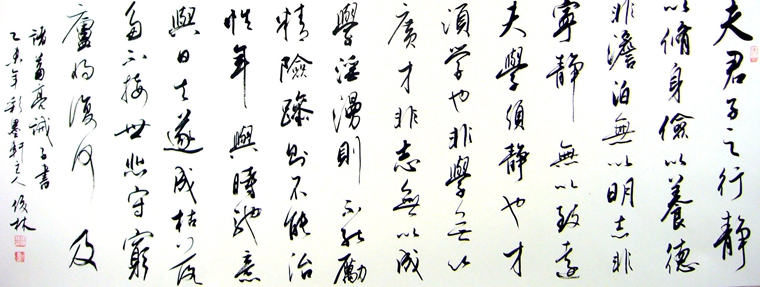 夫君子之行靜
以脩身儉以養德
非澹泊無以明志非
寧靜無以致遠
夫學須靜也才
須学也非學无以
廣才非志無以成
學淫漫則不能勵
精險躁則不能治
性年與時馳意
與日去遂成枯落
多不接世悲守窮
廬將復何及
諸葛亮誡子書
乙亥年彩墨軒主人俊林